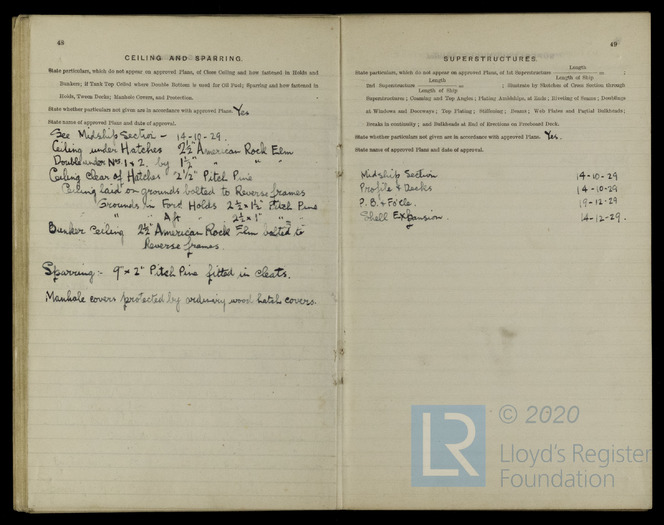 48
CEILING AND SPARRING.
State particulars, which do not appear on approved Plans, of Close Ceiling and how fastened in Holds and
Bunkers; if Tank Top Ceiled where Double Bottom is used for Oil Fuel; Sparring and how fastened in
Holds, Tween Decks; Manhole Covers, and Protection.
State whether particulars not given are in accordance with approved Plans. Yes
State name of approved Plans and date of approval.
See Midship Section - 14-10-29.
Ceiling under Hatches 2½" American Rock Elm
Double under Nos. 1 & 2. by 1½" " " "
Ceiling Clear of Hatches 2½" Pitch Pine
Ceiling laid on grounds bolted to Reverse frames
Grounds in Ford Holds 2½ x 1½" Pitch Pine
" " Aft " 2½ x 1" " "
Bunker Ceiling 2½" American Rock Elm bolted to
Reverse frames.
Sparring :- 9" x 2" Pitch Pine fitted in cleats.
Manhole covers protected by ordinary wood hatch covers.
49
SUPERSTRUCTURES.
State particulars, which do not appear on approved Plans, of 1st Superstructure Length / Length of Ship = ;
2nd Superstructure Length / Length of Ship = ; illustrate by Sketches of Cross Section through
Superstructures; Coaming and Top Angles; Plating Amidships, at Ends; Riveting of Seams; Doublings
at Windows and Doorways; Top Plating; Stiffening; Beams; Web Plates and Partial Bulkheads;
Breaks in continuity; and Bulkheads at End of Erections on Freeboard Deck.
State whether particulars not given are in accordance with approved Plans. Yes.
State name of approved Plans and date of approval.
Midship Section 14-10-29
Profile & Decks 14-10-29
P. B. & Fo'cle. 19-12-29
Shell Expansion 14-12-29.
© 2020
LR
Lloyd's Register
Foundation